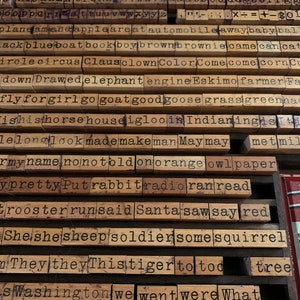 and apple are automobile away baby
back blue boat book boy brown brownie came can
circle circus Claus clown Color Come come corn
down Draw ed elephant engine Eskimo farmer
fly for girl go goat good goose grass green
his horse house I igloo in Indian ing is it
le long look made make man May may met mi
my name no not old on orange owl paper
pretty Put rabbit radio ran read
rooster run said Santa saw say red
She she sheep soldier some squirrel
They they This tiger to too tree
Washington we went were What